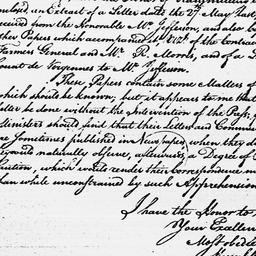 an Extract of a Letter dated the 27 May last,
received from the Honorable Mr. Jefferson, and also
other Papers which accompanied it Viz. of the Contract
Farmer General and Mr. R. Morris, and of a L
Count de Vergennes to Mr. Jefferson.
These Papers contain some Matters of
which should be known, but it appears to me that
be done without the Intervention of the Press, f
Ministers should find that their Letters and Commun
are Sometimes published in Newspapers, when they
would naturally observe, otherwise a Degree of
which would render their correspondence
than while unconstrained by such Apprehension
I have the Honor to
Your Excellen
Most obedie